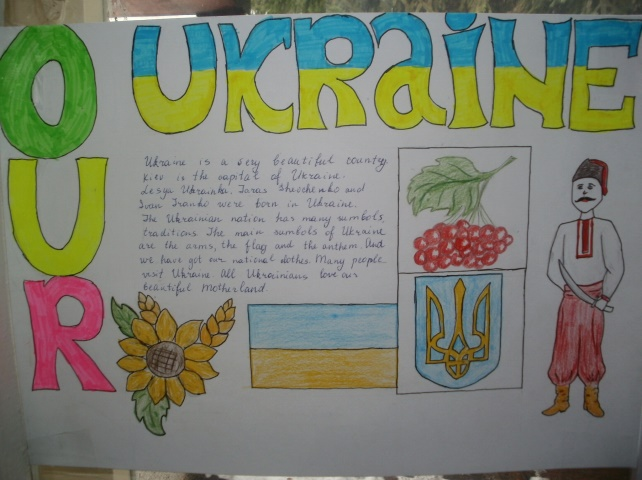 OUR
UKRaINE
Ukraine is a very beautiful country.
Kiev is the capital of Ukraine.
Lesya Ukrainka, Taras Shevchenko and
Ivan Franko were born in Ukraine.
The Ukrainian nation has many symbols,
traditions. The main symbols of Ukraine
are the arms, the flag and the anthem. And
we have got our national clothes. Many people
visit Ukraine. All Ukrainians love our
beautiful Motherland.